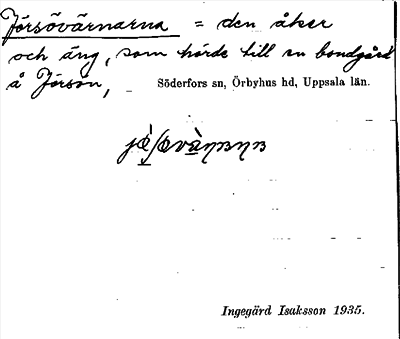 Jörsövärnarna = den åker
och äng, som hörde till en bondgård
å Jörsön, Söderfors sn, Örbyhus hd, Uppsala län.
Ingegärd Isaksson 1935.